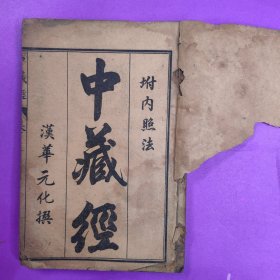 坿內照法
中藏經
漢華元化撰